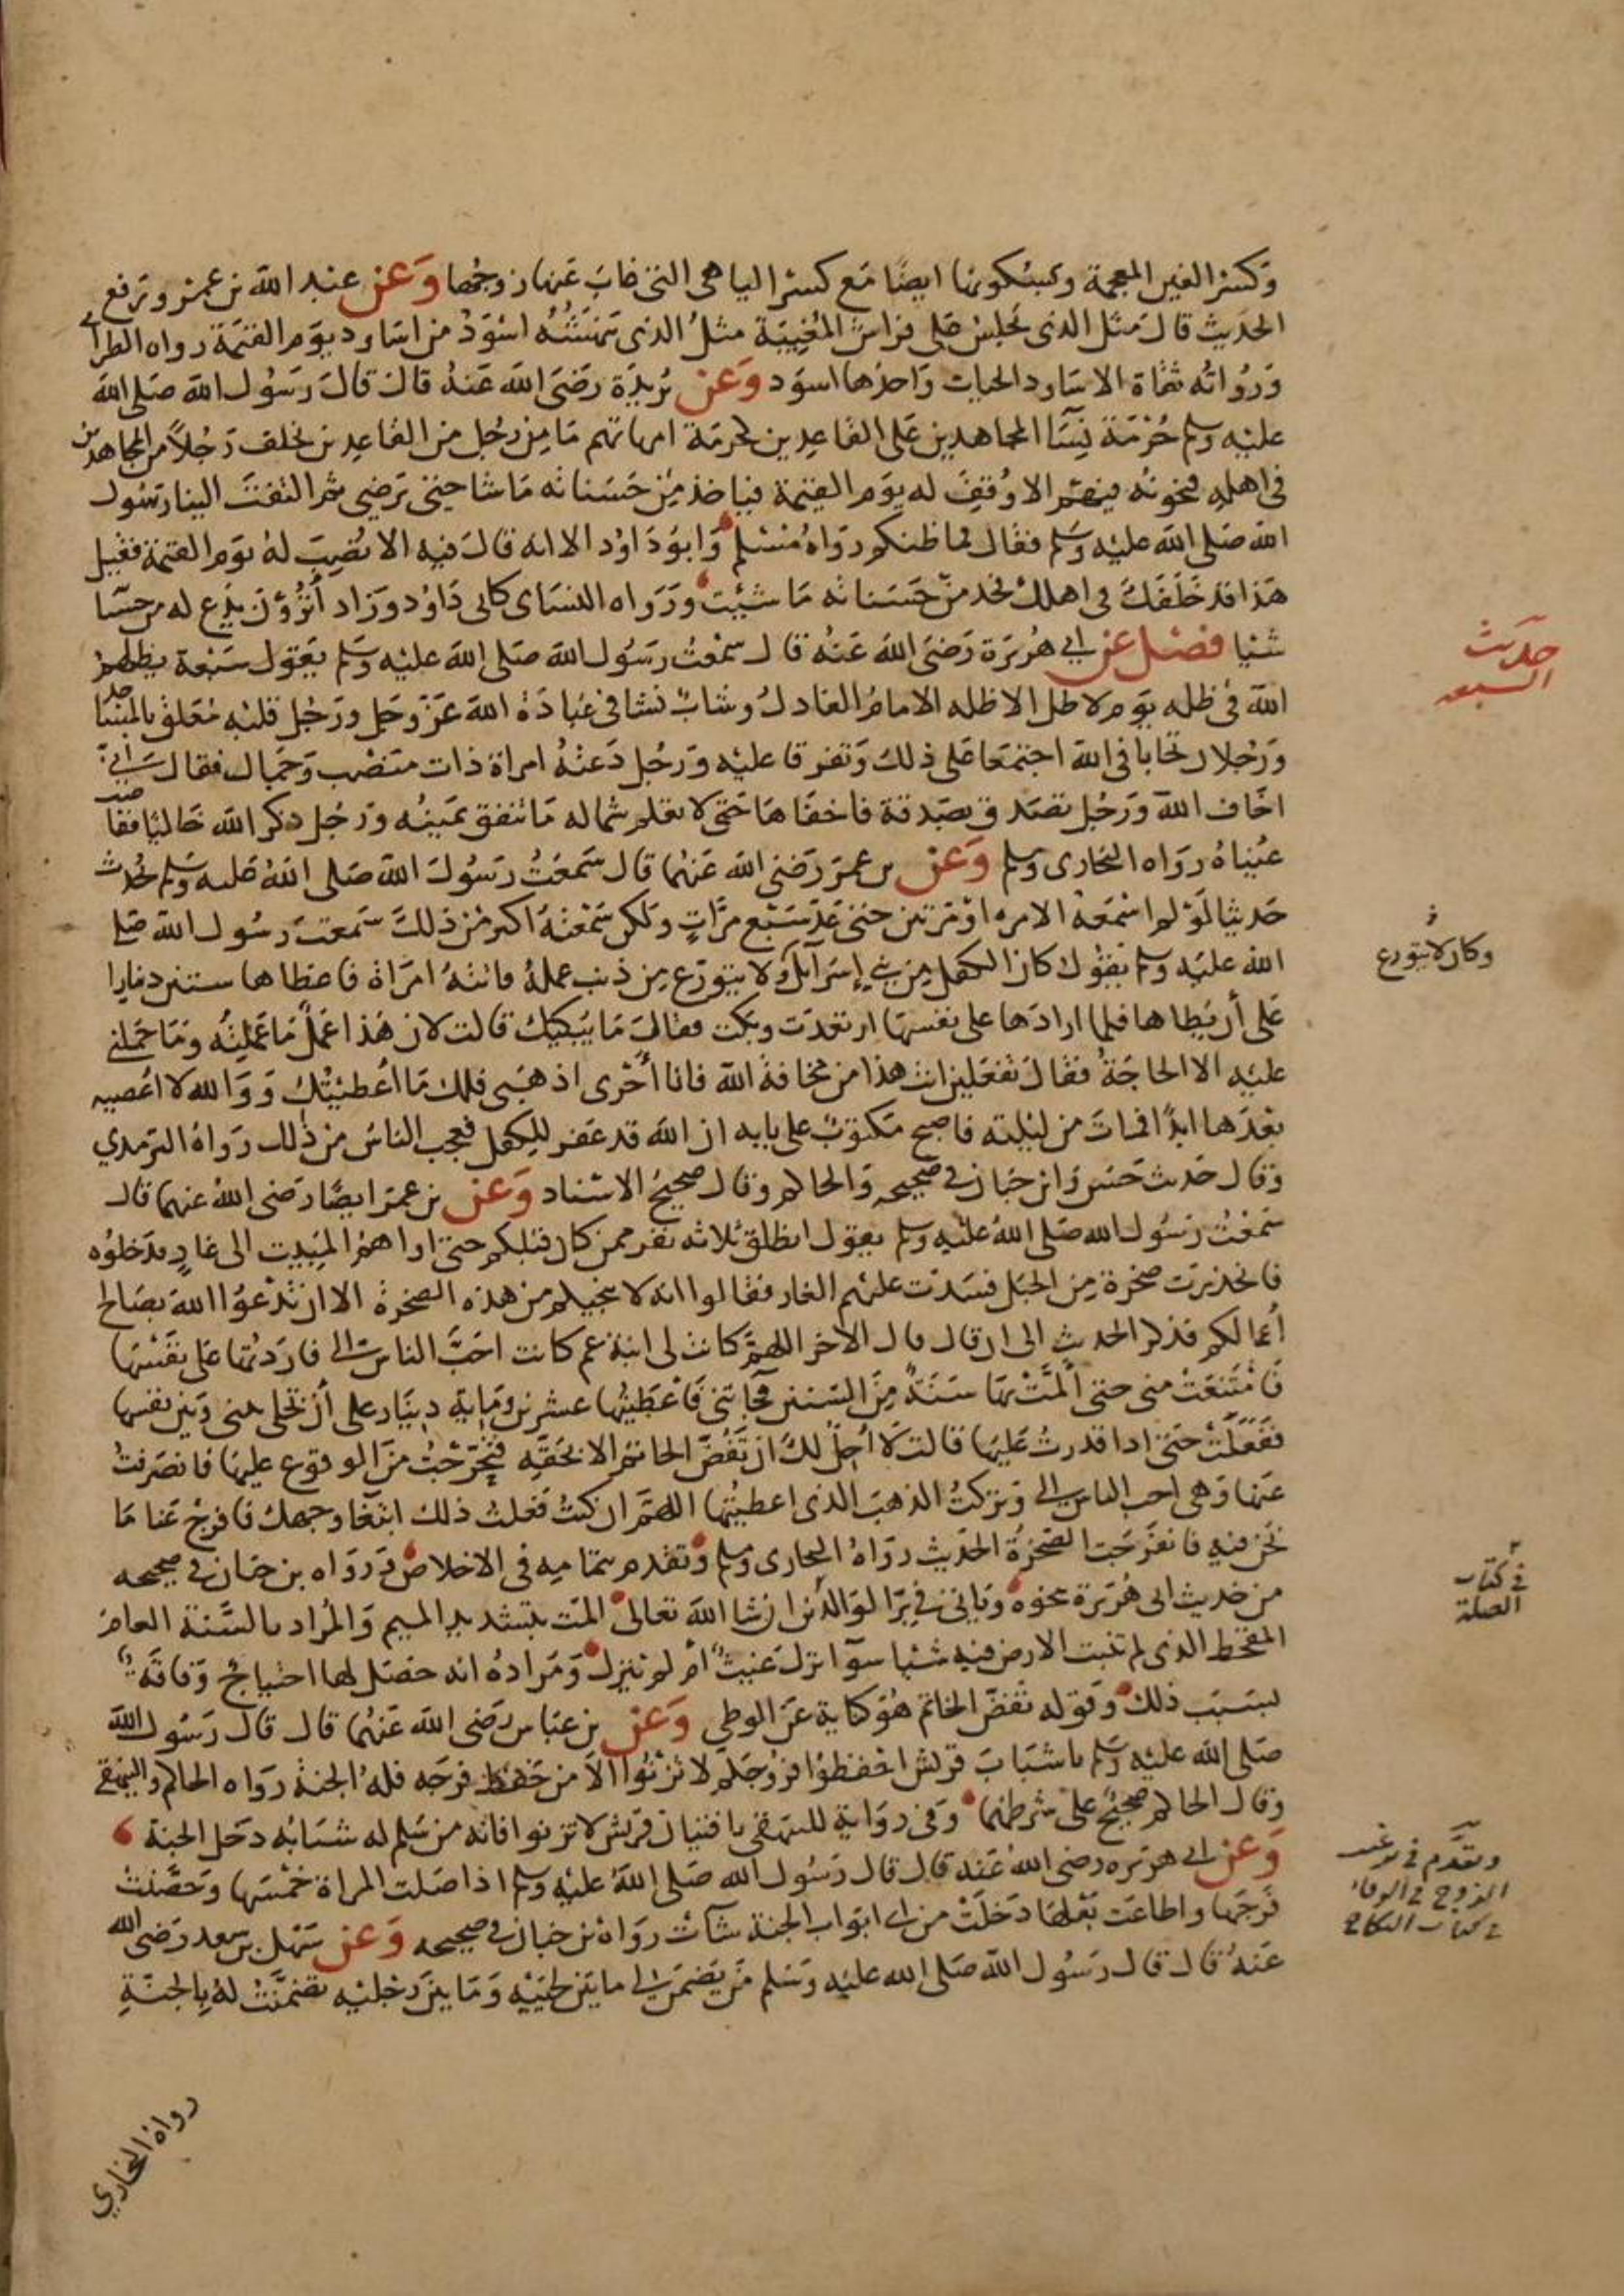 وكسر الغين المعجمة وبسكونها ايضا مع كسر اليا هي التي غاب عنها زوجها وعن عبد الله بن عمر ورفع
الحديث قال مثل الذي يجلس على فراش المغيبة مثل الذي نهشه اسود من اساود يوم القيمة رواه الطبراني
ورواته ثقاة الاساود الحيات واحدها اسود وعن بريدة رضي الله عنه قال قال رسول الله صلى الله
عليه وسلم حرمة نسا المجاهدين على القاعدين كحرمة امهاتهم ما من رجل من القاعدين يخلف رجلا من المجاهدين
في اهله فيخونه فيهم الا وقف له يوم القيمة فياخذ من حسناته ما شا حتى يرضى ثم التفت الينا رسول
الله صلى الله عليه وسلم فقال فما ظنكم رواه مسلم وابو داود الا انه قال فيه الا نصب له يوم القيمة فقيل
هذا قد خلفك في اهلك فخذ من حسناته ما شيت ورواه النساى كابى داود وزاد أترون يدع له من حسناته
شيا فصل عن ابي هريرة رضي الله عنه قال سمعت رسول الله صلى الله عليه وسلم يقول سبعة يظلهم
الله في ظله يوم لا ظل الا ظله الامام العادل وشاب نشا في عبادة الله عز وجل ورجل قلبه معلق بالمساجد
ورجلان تحابا في الله اجتمعا على ذلك وتفرقا عليه ورجل دعته امراة ذات منصب وجمال فقال اني
اخاف الله ورجل تصدق بصدقة فاخفاها حتى لا تعلم شماله ما تنفق يمينه ورجل ذكر الله خاليا ففاضت
عيناه رواه البخارى ومسلم وعن بن عمر رضي الله عنهما قال سمعت رسول الله صلى الله عليه وسلم يحدث
حديثا لو لم اسمعه الا مره او مرتين حتى عد سبع مرات ولكن سمعته اكثر من ذلك سمعت رسول الله صلى
الله عليه وسلم يقول كان الكفل من بني إسرآيل ولا يتورع من ذنب عمله فاتته امراة فاعطاها ستين دينارا
على أن يطاها فلما ارادها على نفسها ارتعدت وبكت فقال ما يبكيك قالت لان هذا عمل ما عملته وما حملني
عليه الا الحاجة فقال تفعلين انت هذا من مخافة الله فانا أحرى اذهبى فلك ما أعطيتك و والله لا اعصيه
بعدها ابدا فمات من ليلته فاصبح مكتوب على بابه ان الله قد غفر للكفل فعجب الناس من ذلك رواه الترمذي
وقال حديث حسن وابن حبان في صحيحه والحاكم وقال صحيح الاسناد وعن بن عمر ايضا رضي الله عنهما قال
سمعت رسول الله صلى الله عليه وسلم يقول انطلق ثلاثة نفر ممن كان قبلكم حتى اواهم المبيت الى غار فدخلوه
فانحدرت صخرة من الجبل فسدت عليهم الغار فقالوا انه لا ينجيكم من هذه الصخرة الا ان تدعوا الله بصالح
أعمالكم فذكر الحديث الى ان قال قال الاخر اللهم كانت لى ابنة عم كانت احب الناس الي فاردتها على نفسها
فامتنعت منى حتى ألمت بها سنة من السنين فجآتني فاعطيتها عشرين وماية دينار على أن تخلى بينى وبين نفسها
ففعلت حتى اذا قدرت عليها قالت لا أحل لك ان تفض الخاتم الا بحقه فتحرجت من الوقوع عليها فانصرفت
عنها وهي احب الناس الي وتركت الذهب الذي اعطيتها اللهم ان كنت فعلت ذلك ابتغا وجهك فافرج عنا ما
نحن فيه فانفرجت الصخرة الحديث رواه البخارى ومسلم وتقدم بتمامه في الاخلاص ورواه بن حبان في صحيحه
من حديث ابى هريرة بنحوه وياتي في برا لوالدين ان شا الله تعالى المت بتشديد الميم والمراد بالسنة العام
المقحط الذي لم تنبت الارض فيه شيا سوآ نزل غيث ام لم ينزل ومراده انه حصل لها احتياج وفاقة
بسبب ذلك وقوله تفض الخاتم هو كناية عن الوطي وعن بن عباس رضي الله عنهما قال قال رسول الله
صلى الله عليه وسلم يا شباب قريش احفظوا فروجكم لا تزنوا الا من حفظ فرجه فله الجنة رواه الحاكم والبيهقي
وقال الحاكم صحيح على شرطهما وفي رواية للبيهقي يا فتيان قريش لا تزنوا فانه من سلم له شبابه دخل الجنة
وعن ابي هريره رضي الله عنه قال قال رسول الله صلى الله عليه وسلم اذا صلت المراة خمسها وحصنت
فرجها واطاعت بعلها دخلت من اي ابواب الجنة شآت رواه بن حبان في صحيحه وعن سهل بن سعد رضي الله
عنه قال قال رسول الله صلى الله عليه وسلم من يضمن لي ما بين لحييه وما بين رجليه تضمنت له بالجنة
رواه البخاري
حديث
السبعه
وكان لا يتورع
في كتاب
الصلة
وتقدم في ترغيب
الزوج في الوفاء
في كتاب النكاح